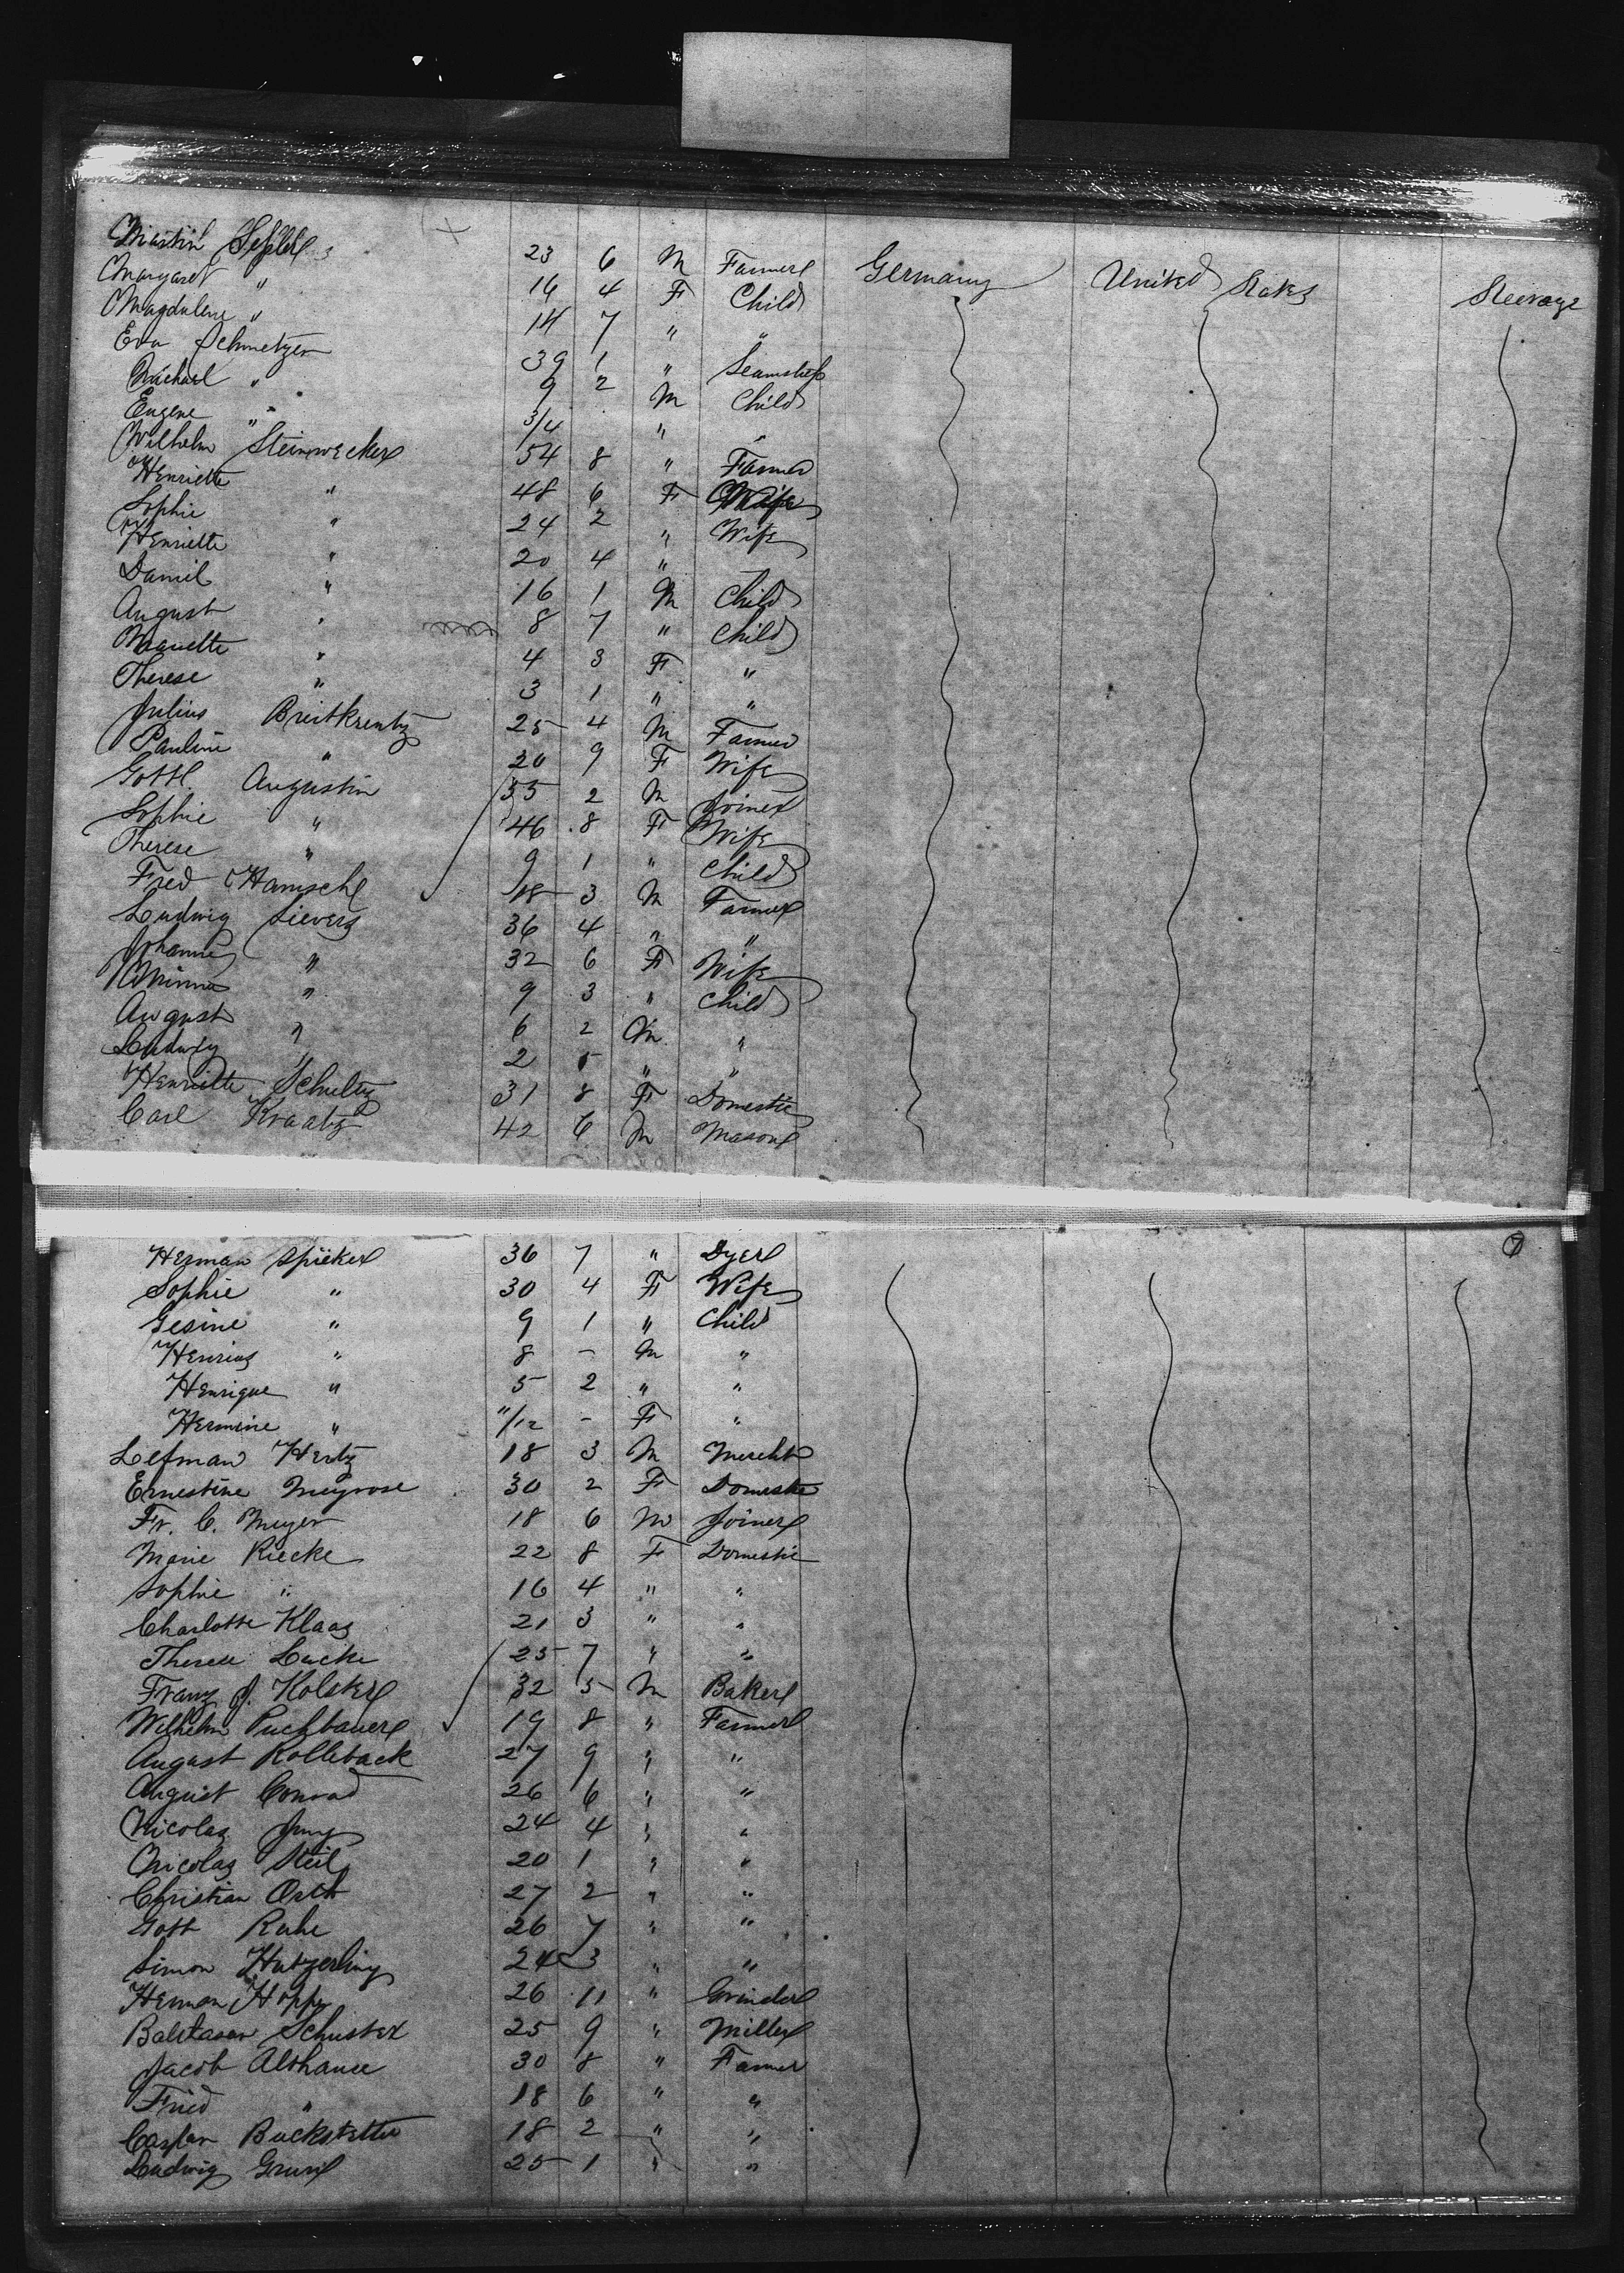 Martin 23 6 M Farmer Germany United States Steerage
Margaret " 16 4 F Child
Magdalene " 14 7 " "
Eva Schmetzer 39 1 " Seamstress
Michael " 9 2 M Child
Eugene " 3/4 " "
Wilhelm Steinwecker 54 8 " Farmer
Henriette " 48 6 F Wife
Sophie " 24 2 " Wife
Henriette " 20 4 "
Daniel " 16 1 M Child
August " 8 7 " Child
" 4 3 F "
Therese " 3 1 " "
Julius Breitkrentz 25 4 M Farmer
Pauline " 20 9 F Wife
Gottl. Augustin 55 2 M Joiner
Sophie " 46 8 F Wife
Therese " 9 1 " Child
Fred Hanisch 18 3 M Farmer
Ludwig Sievers 36 4 " "
Johanne " 32 6 F Wife
Minna " 9 3 " Child
August " 6 2 M "
Ludwig " 2 5 " "
Henriette Schultz 31 8 F Domestic
Carl Kraatz 42 6 M Mason
7
Herman Spieker 36 7 " Dyer
Sophie " 30 4 F Wife
Gesine " 9 1 " Child
" 8 - M "
Henrique " 5 2 " "
Hermine " 11/12 - F "
Lefman Hertz 18 3 M Mercht
Ernestine Meyrose 30 2 F Domestic
Fr. C. Meyer 18 6 M Joiner
Marie Riecke 22 8 F Domestic
Sophie " 16 4 " "
Charlotte Klaas 21 3 " "
Therese Lucke 25 7 " "
Franz J. Holster 32 5 M Baker
Wilhelm Puchbauer 19 8 " Farmer
August Rolleback 27 9 " "
August Conrad 26 6 " "
Nicolas Jung 24 4 " "
Nicolas Steil 20 1 " "
Christian Orth 27 2 " "
Gott Ruhe 26 7 " "
Simon Hutzerling 24 3 " "
Herman Hopp 26 11 " Grinder
Baltasar Schuster 25 9 " Miller
Jacob Althaus 30 8 " Farmer
Fried " 18 6 " "
Caspar Buckstetter 18 2 " "
Ludwig 25 1 " "